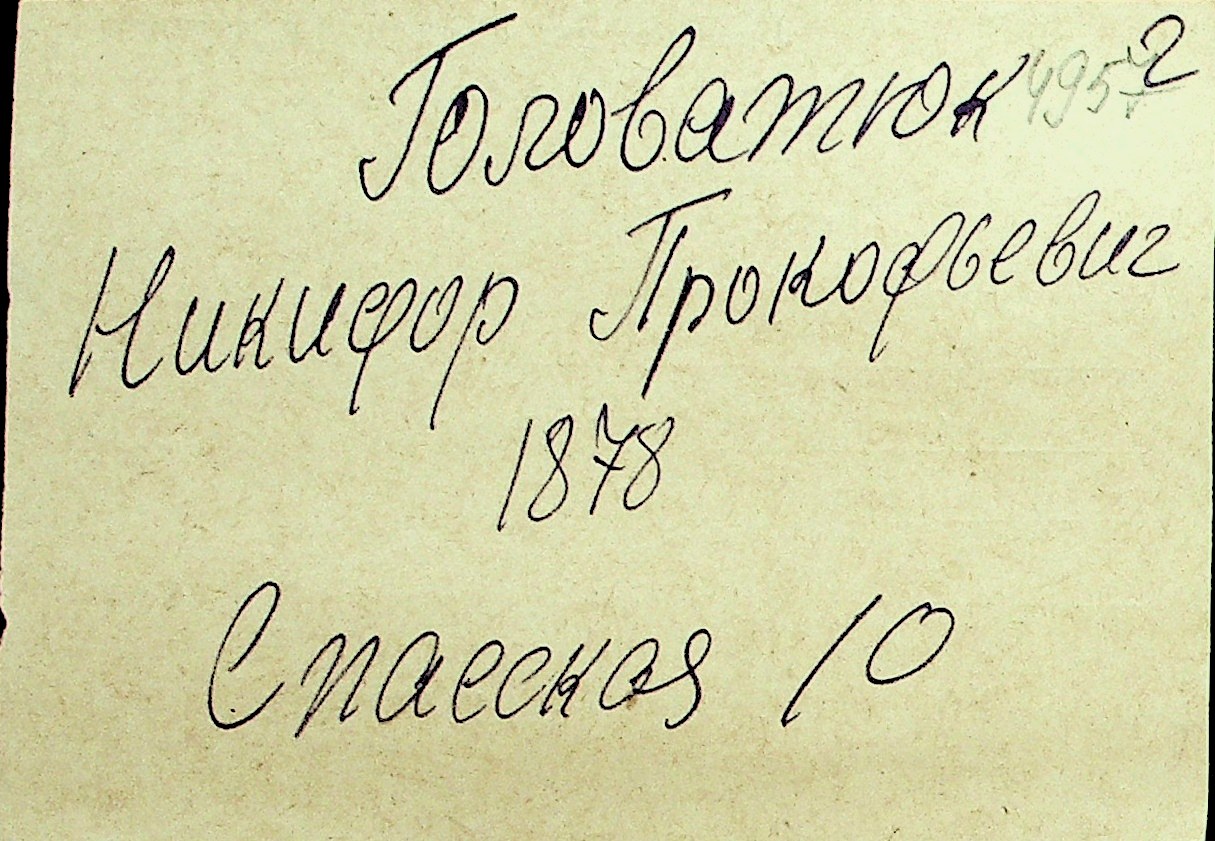 Головатюк 4957 2
Никифор Прокофьевич
1878
Спасская 10